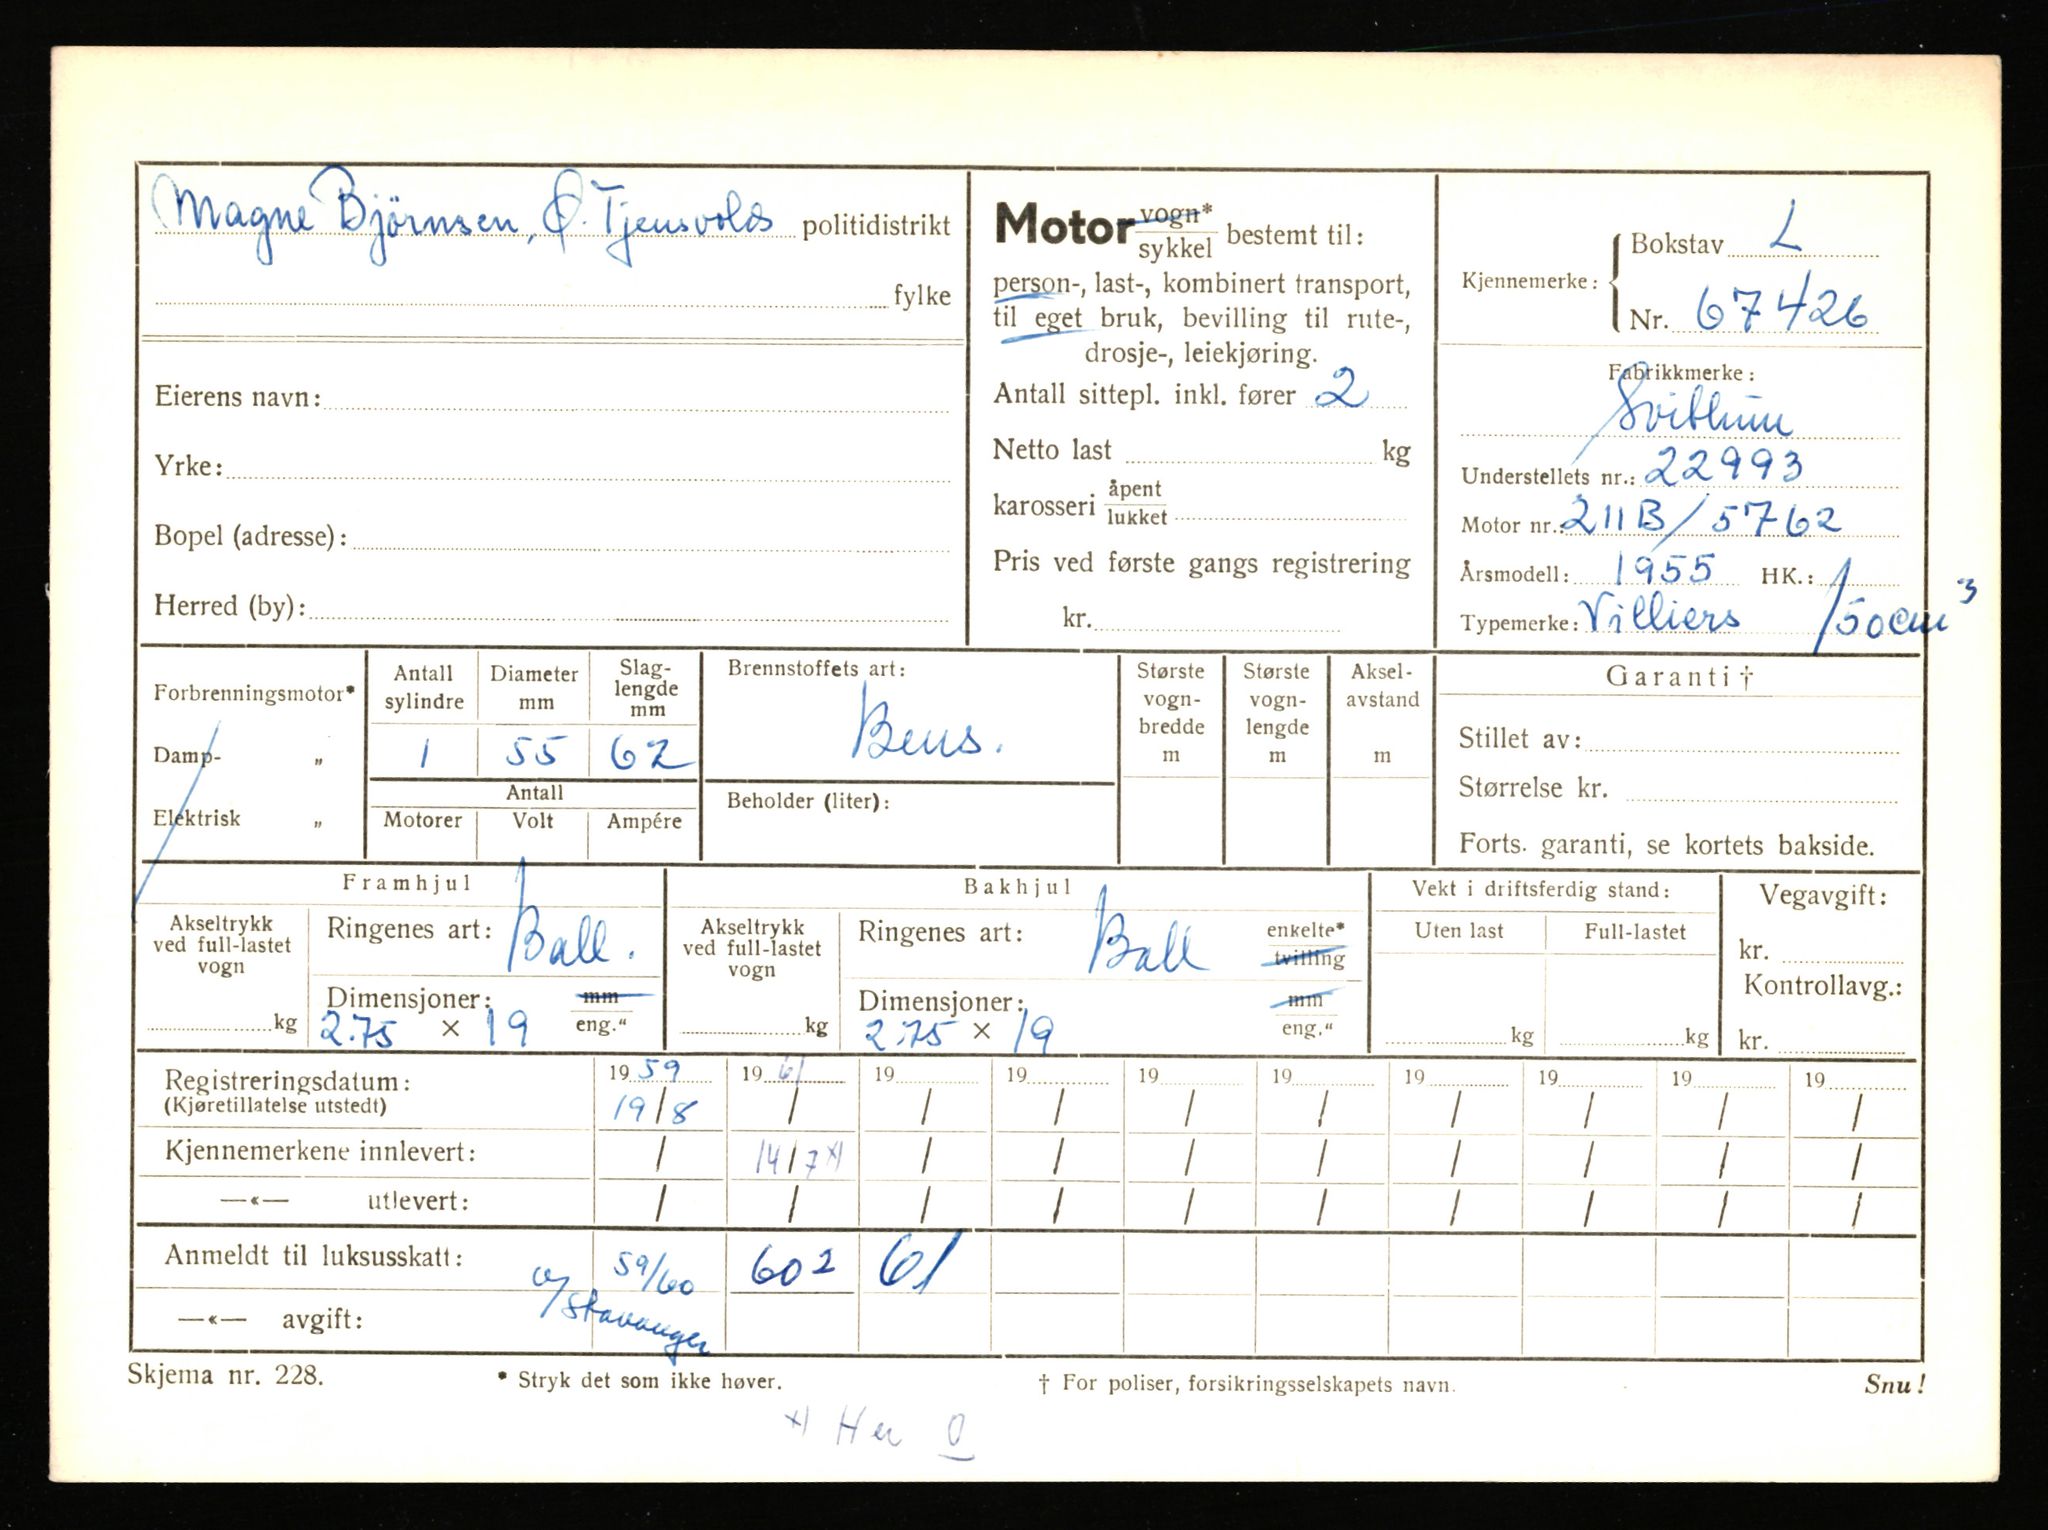 Magne Björnsen, Ø. Tjensvolds politidistrikt
fylke
Eierens navn:
Yrke:
Bopel (adresse):
Herred (by):
Motor vogn* sykkel bestemt til:
person-, last-, kombinert transport,
til eget bruk, bevilling til rute-,
drosje-, leiekjøring.
Antall sittepl. inkl. fører 2
Netto last kg
karosseri åpent lukket
Pris ved første gangs registrering
kr.
Kjennemerke: Bokstav L
Nr. 67426
Fabrikkmerke:
Svithun
Understellets nr.: 22993
Motor nr.: 211B/5762
Årsmodell: 1955 HK.:
Typemerke: Villiers 150 cm³
Forbrenningsmotor*
Damp- „
Elektrisk „
Antall sylindre
Diameter mm
Slag-lengde mm
1 55 62
Antall
Motorer Volt Ampére
Brennstoffets art:
Bens.
Beholder (liter):
Største vogn-bredde m
Største vogn-lengde m
Aksel-avstand m
Garanti †
Stillet av:
Størrelse kr.
Forts. garanti, se kortets bakside.
Framhjul
Akseltrykk ved full-lastet vogn
kg
Ringenes art: Ball.
Dimensjoner: mm
2.75 × 19 eng."
Bakhjul
Akseltrykk ved full-lastet vogn
kg
Ringenes art: Ball enkelte* tvilling
Dimensjoner: mm
2.75 × 19 eng."
Vekt i driftsferdig stand:
Uten last Full-lastet
kg kg
Vegavgift:
kr.
Kontrollavg.:
kr.
Registreringsdatum: 1959 1961 19 19 19 19 19 19 19 19
(Kjøretillatelse utstedt) 19/8 / / / / / / / / /
Kjennemerkene innlevert: / 14/7 x) / / / / / / / /
—«— utlevert: / / / / / / / / / /
Anmeldt til luksusskatt: 59/60 60 2 61
—«— avgift: Stavanger
Skjema nr. 228. * Stryk det som ikke høver. † For poliser, forsikringsselskapets navn. Snu!
x) Her 0